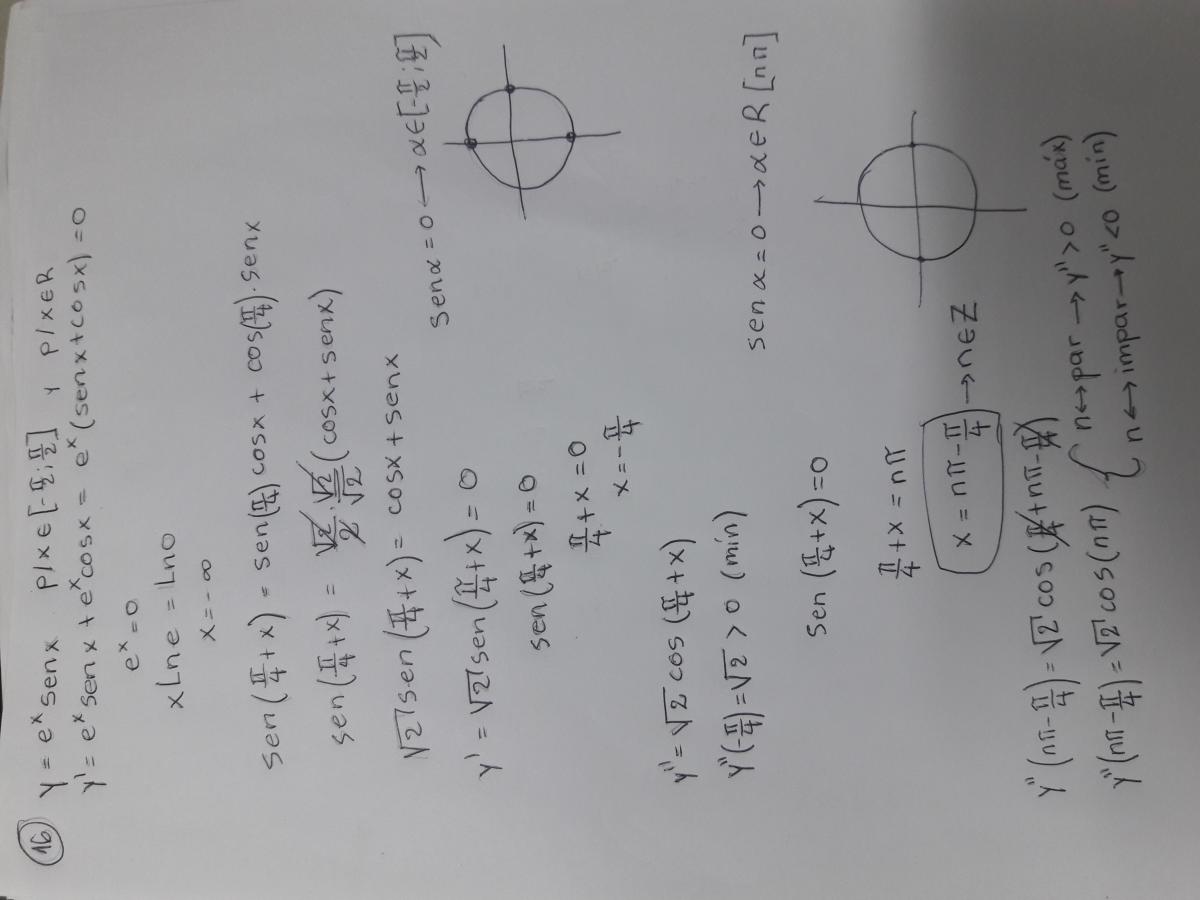 16 y = e^x senx p/x∈[-π/2;π/2] y p/x∈R
y' = e^x senx + e^x cosx = e^x(senx+cosx)=0
e^x=0
xLne = Ln0
x=-∞
sen(π/4+x) = sen(π/4)cosx + cos(π/4)·senx
sen(π/4+x) = √2/2·√2/√2(cosx+senx)
√2 sen(π/4+x) = cosx+senx
senα=0 ⟷ α∈[-π/2;π/2]
y' = √2 sen(π/4+x) = 0
sen(π/4+x)=0
π/4+x=0
x=-π/4
y''=√2 cos(π/4+x)
y''(-π/4)=√2>0 (mín)
senα=0 → α∈R [nπ]
sen(π/4+x)=0
π/4+x=nπ
x=nπ-π/4 → n∈Z
y''(nπ-π/4)=√2 cos(π/4+nπ-π/4)
y''(nπ-π/4)=√2 cos(nπ) { n↔par → y''>0 (máx)
n↔impar → y''<0 (mín)